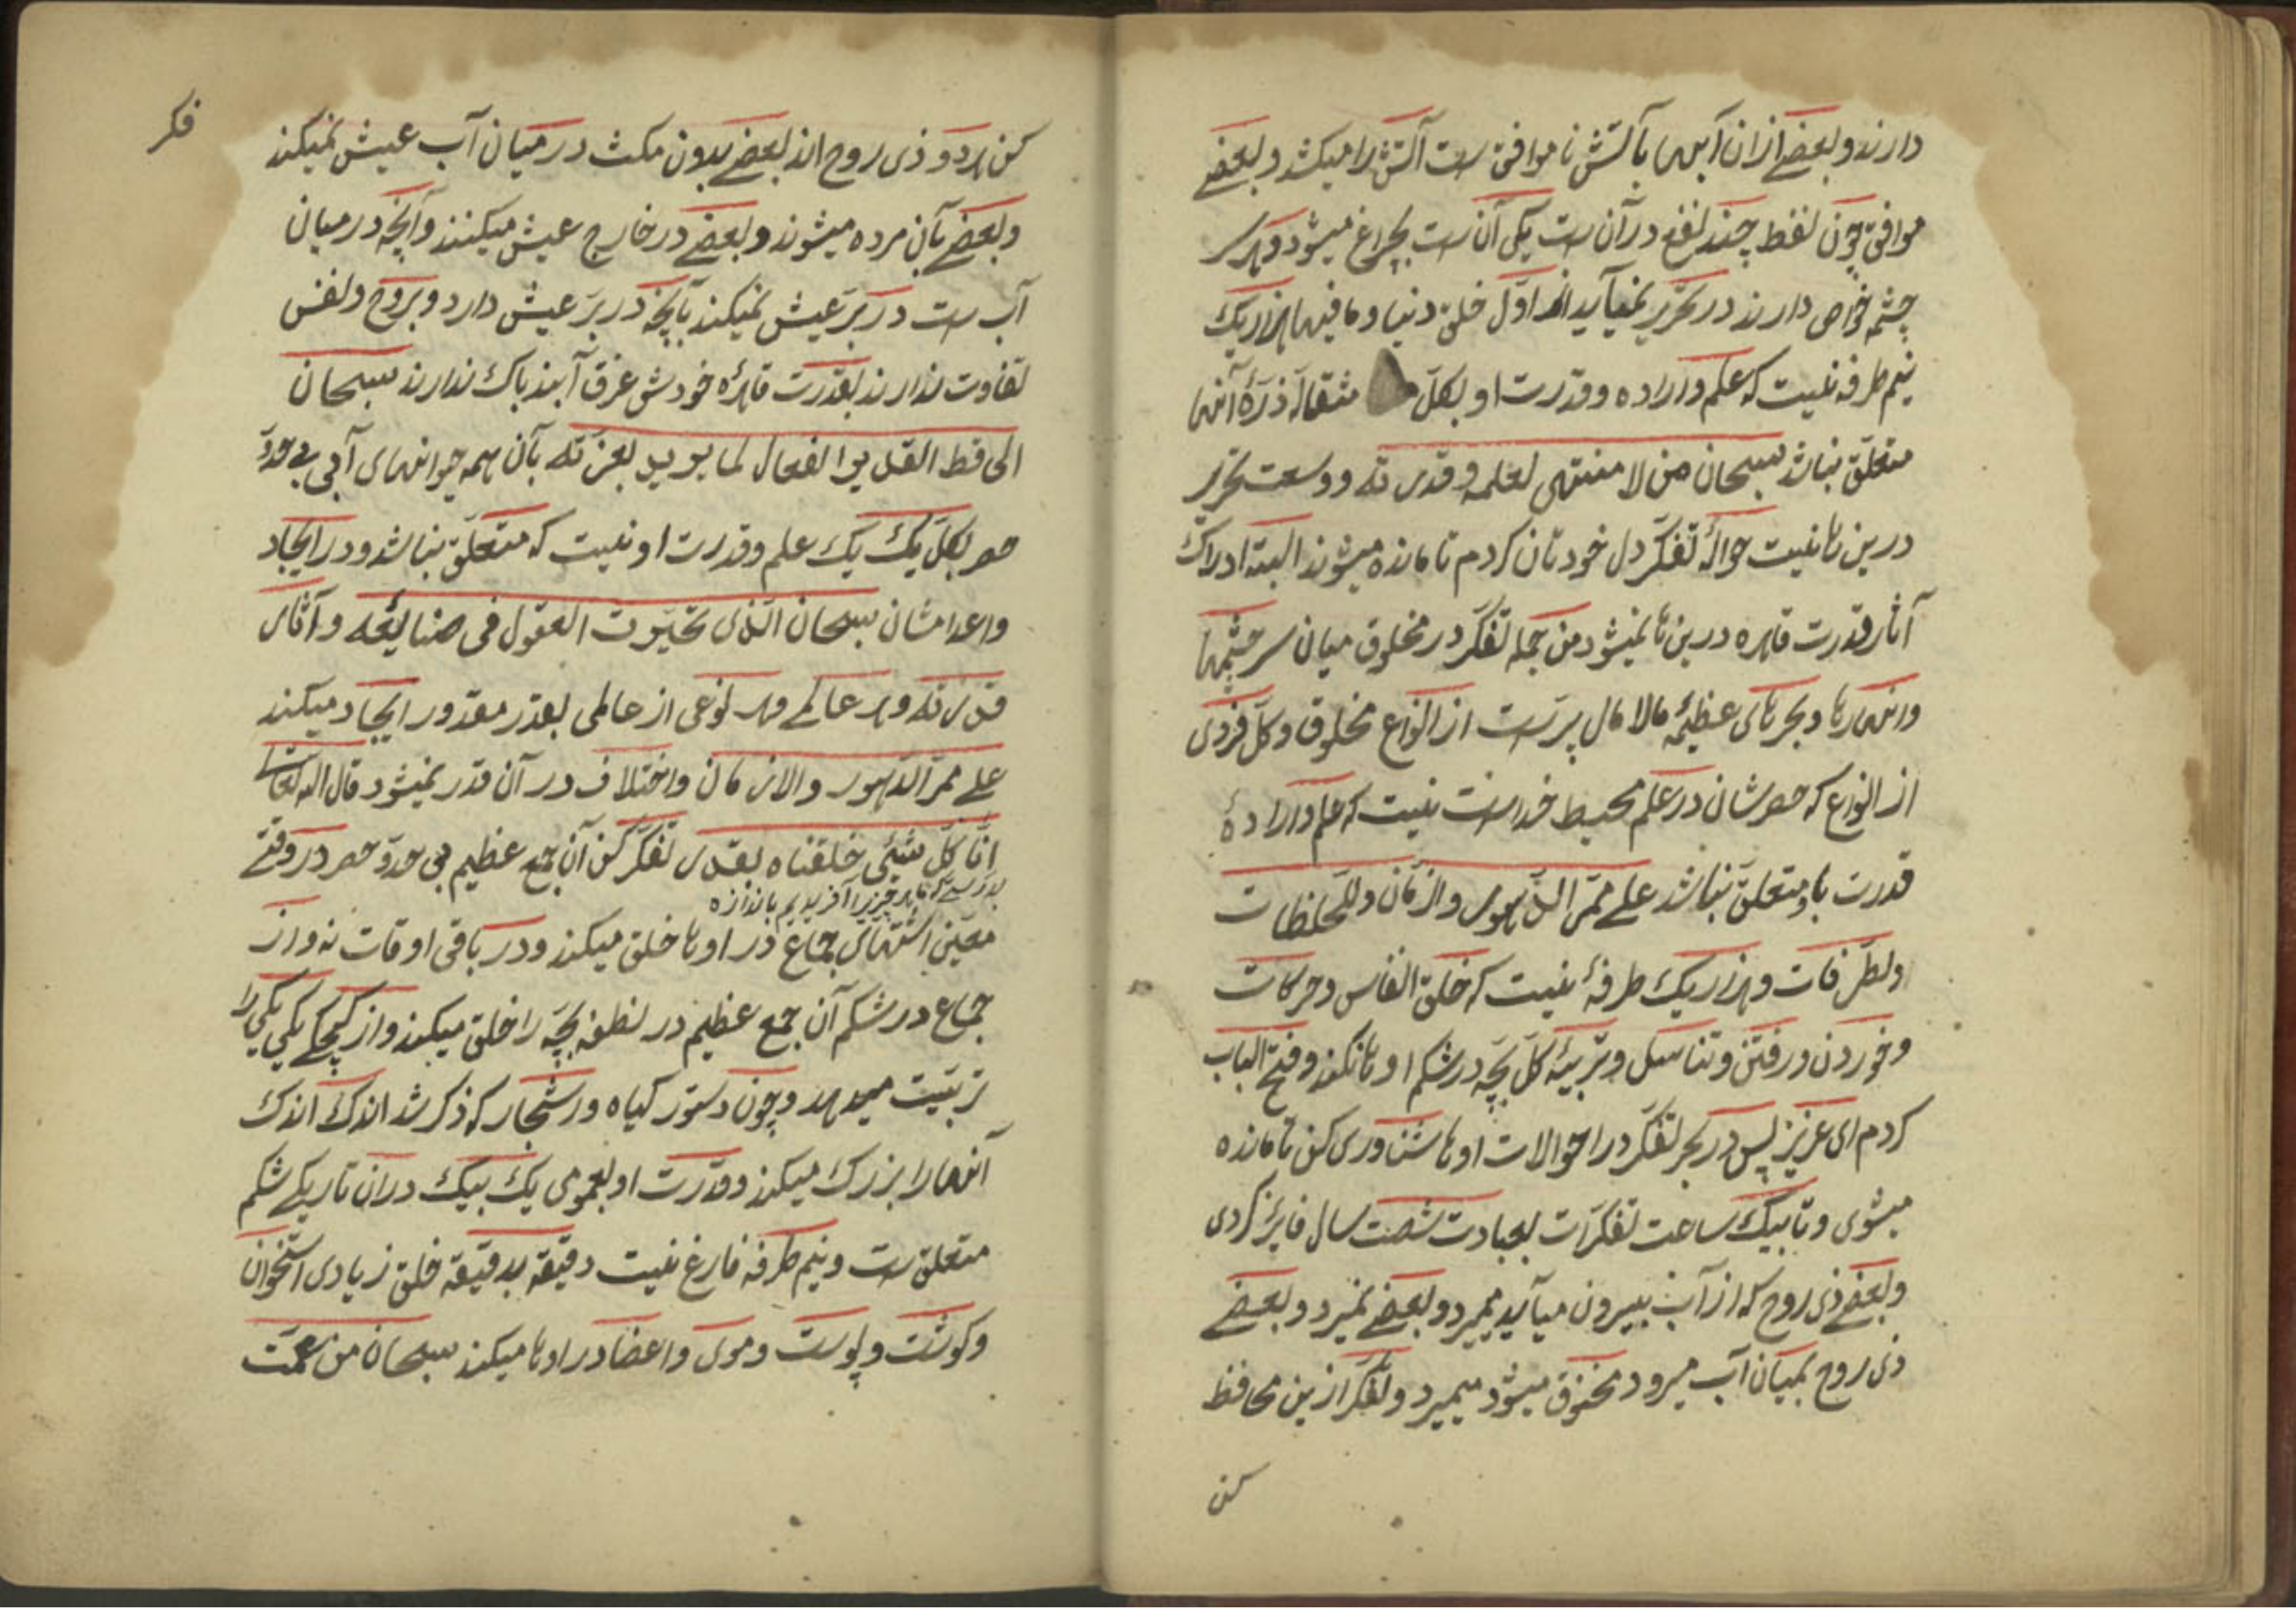 دارند و بعضی ازان آبها بآتش ناموافق ست آتش را میکشد و بعضی
موافق چون نفط چند نفع در آن ست یکی آن ست بچراغ میشود و هر سر
چشمه خواص دارند در تحریر نمیآید از اوّل خلق دنیا و ما فیها هزار یک
نیم طرفه نیست که علم و اراده و قدرت او بکلّ مثقال ذرّهٔ آنها
متعلّق نباشد سبحان من لا منتهی لعلمه و قدرته و وسعت تحریر
درین نیست حوالهٔ تفکّر دل خودتان کردم تا مانده میشوند البته ادراک
آثار قدرت قاهره درین نمیشود من جمله تفکّر در مخلوق میان سرچشمها
و انهارها و بحرهای عظیمه مالامال پر ست از انواع مخلوق و کلّ فردی
از انواع که حصرشان در علم محیط خداست نیست که علم و ارادهٔ
قدرت باو متعلّق نباشد علی ممرّ الدّهور و ازمان و للحظات
و لطرفات و هزار یک طرفهٔ نیست که خلق انفاس و حرکات
و خوردن و رفتن و تناسل و تربیهٔ کلّ بچّه در شکم اوها نکند و فتح الباب
کردم ای عزیز پس در بحر تفکّر در احوالات اوها شناوری کن تا مانده
میشوی و تا بیک ساعت تفکّرات بعبادت شصت سال فایز کردی
و بعضی ذی روح که از آب بیرون میآید میمیرد و بعضی نمیرد و بعضی
ذی روح بمیان آب میرود مخنوق میشود میمیرد و تفکّر ازین محافظ
کن
فکر
کن هردو ذی روح اند بعضی بدون مکث در میان آب عیش نمیکند
و بعضی بآن مرده میشوند و بعضی در خارج عیش میکنند و آنچه در میان
آب ست در برّ عیش نمیکند بآنچه در برّ عیش دارد و بروح و نفس
تفاوت ندارند بقدرت قاهرهٔ خودش غرق آبند باک ندارند سبحان
الحافظ القدیر الفعال لما یرید بعزّته بآن همه حیوانهای آبی بی حدّ و
حصر بکلّ یک یک علم و قدرت او نیست که متعلّق نباشد و در ایجاد
و اعدامشان سبحان الذی تحیّرت العقول فی صنایعه و آثار
قدرته و هر عالمی و هر نوعی از عالمی بقدر مقدور ایجاد میکند
علی ممرّ الدّهور و الازمان و اختلاف در آن قدر نمیشود قال الله تعالی
انّا کلّ شیئ خلقناه بقدر تفکّر کن آن جمع عظیم بی حدّ و حصر در وقتی
بدرستیکه ما هر چیز را آفریدیم باندازه
معیّن اشتهای جماع در اوها خلق میکند و در باقی اوقات نه و از
جماع در شکم آن جمع عظیم در نطفه بچّه را خلق میکند و از کیچکی یکی یکی را
تربیت میدهد و چون دستور کیاه و اشجار که ذکر شد اندک اندک
آنها را بزرک میکند و قدرت او بعموم یک بیک دران تاریکی شکم
متعلق ست و نیم طرفه فارغ نیست دقیقه بدقیقه خلق زیادی استخوان
و کوشت و پوست و موی و اعضا در اوها میکند سبحان من عمّت